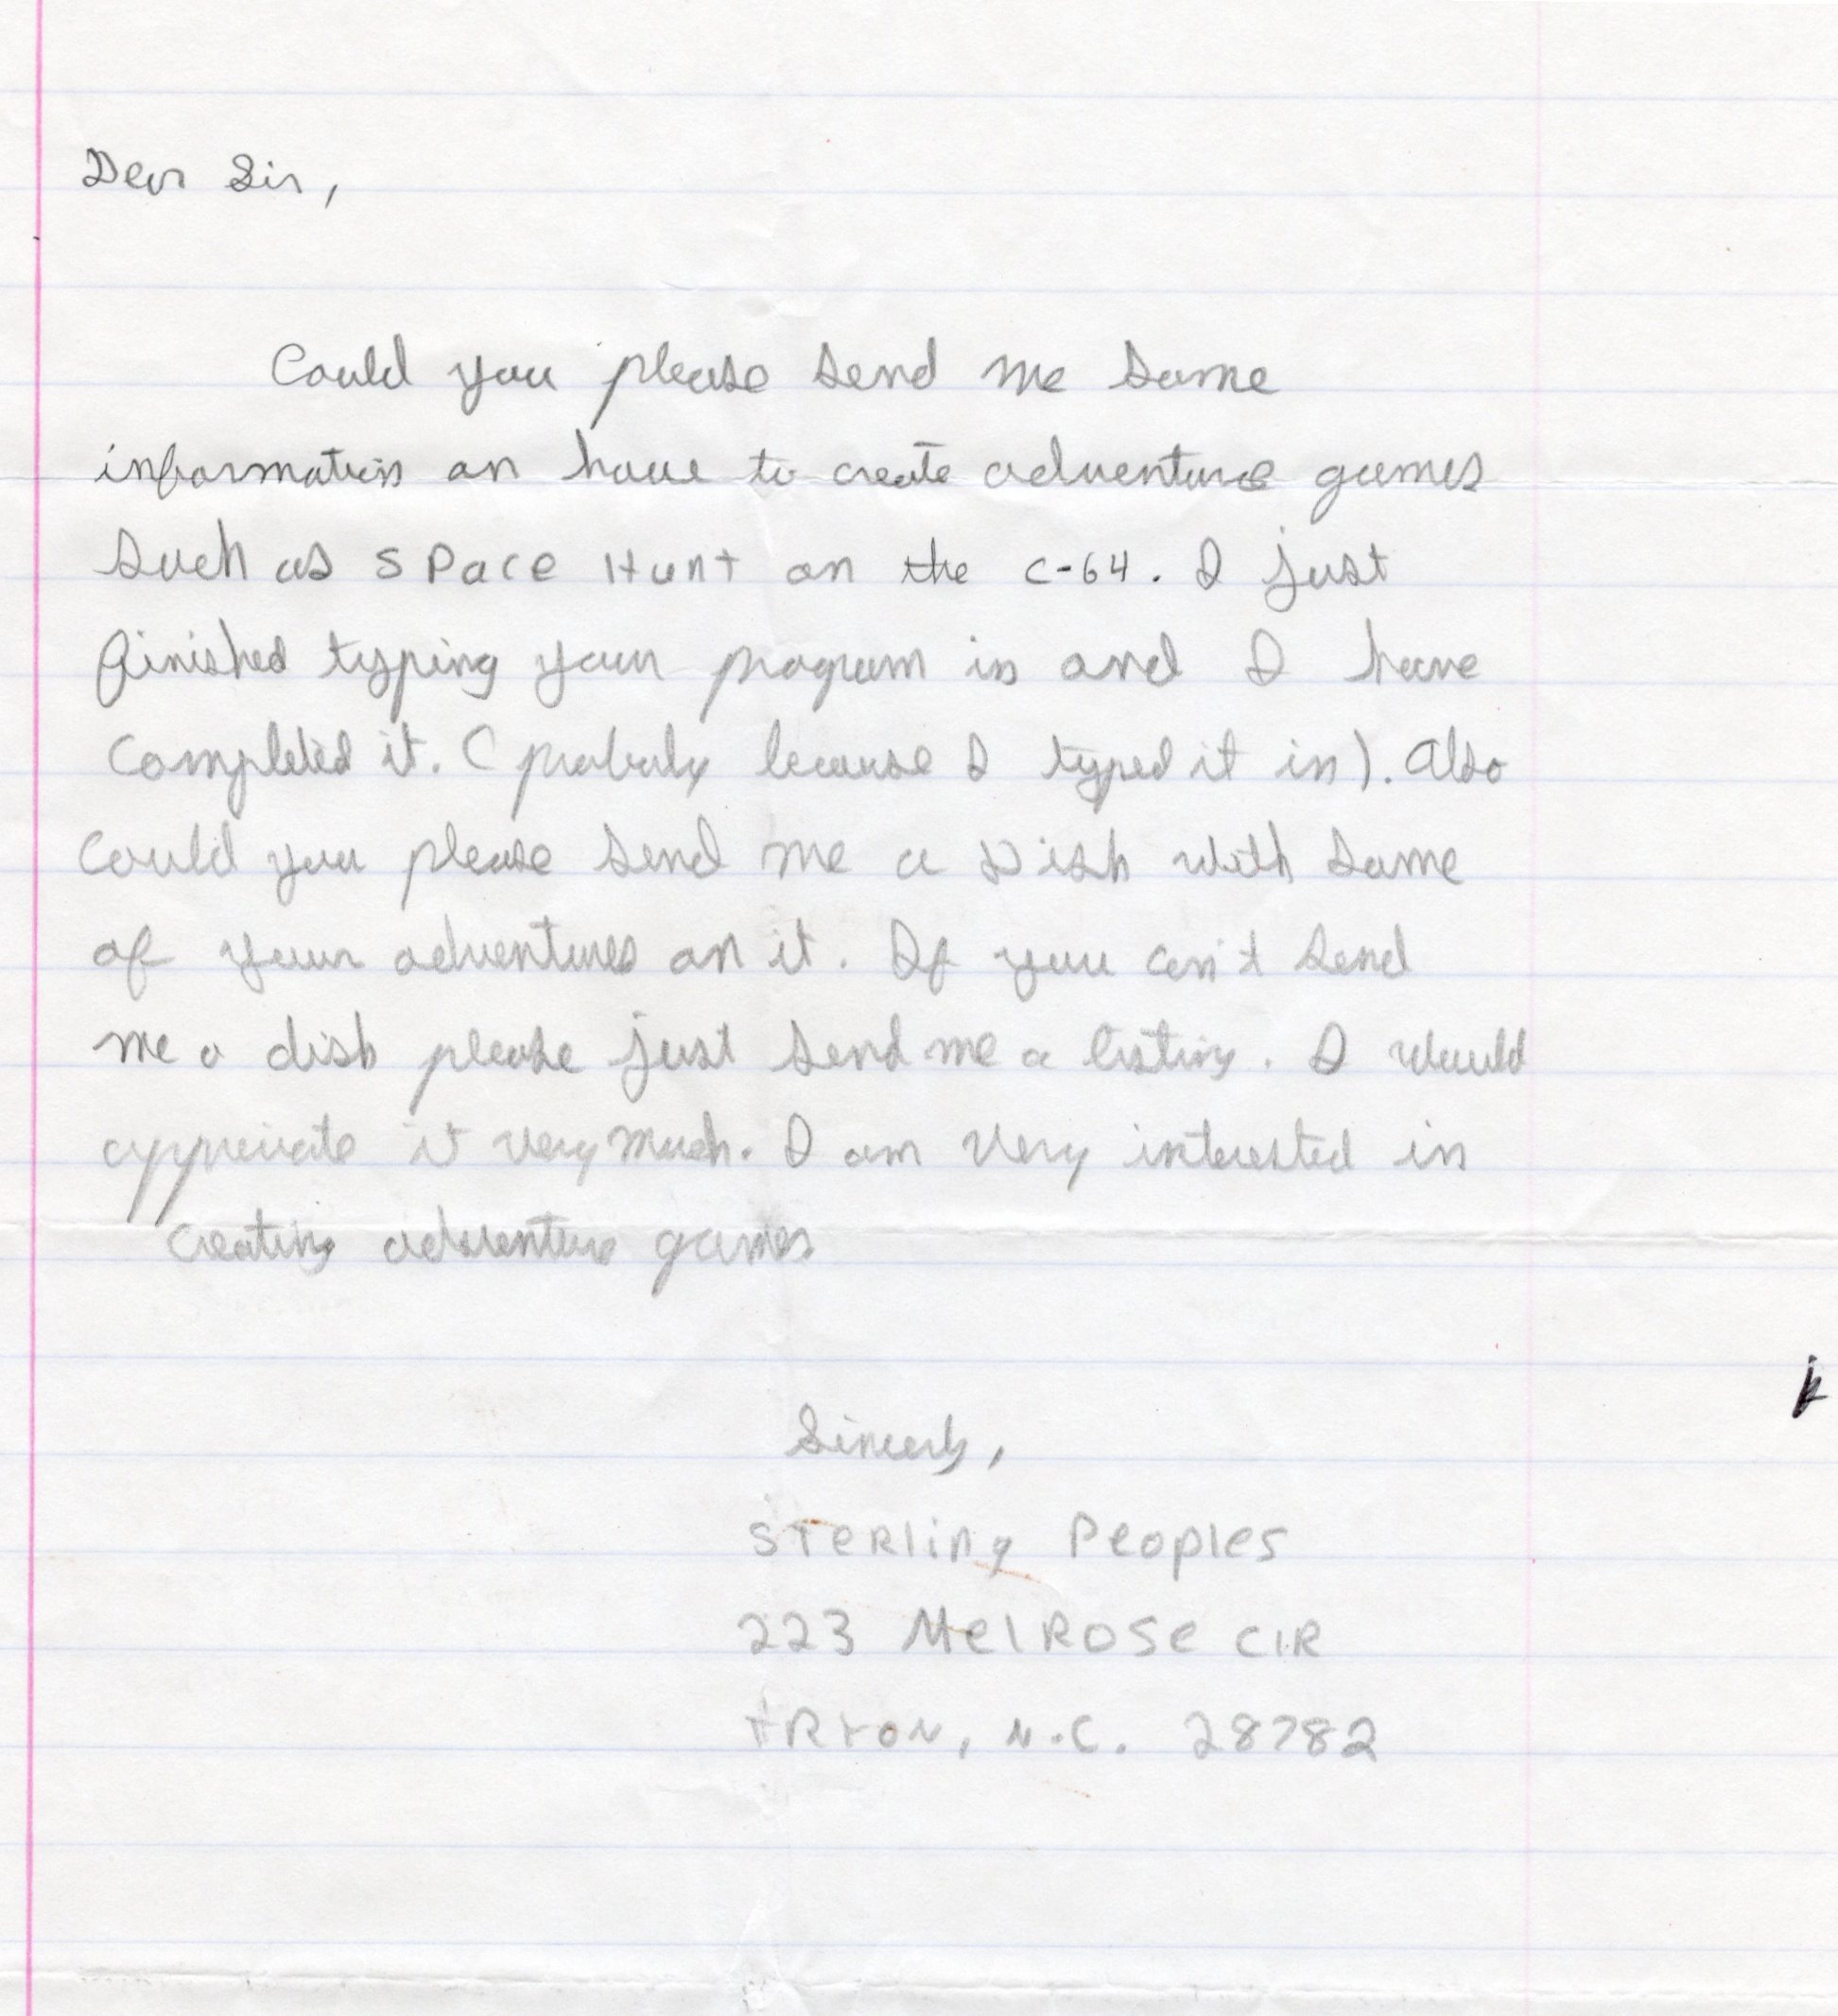 Dear Sir,
Could you please send me some
information on how to create adventure games
such as Space Hunt on the C-64. I just
finished typing your program in and I have
completed it. (probaly because I typed it in). Also
could you please send me a Disk with some
of your adventures on it. If you can't send
me a disk please just send me a listing. I would
appreciate it very much. I am very interested in
creating adventure games
Sincerly,
Sterling Peoples
223 Melrose CIR
TRYON, N.C. 28782